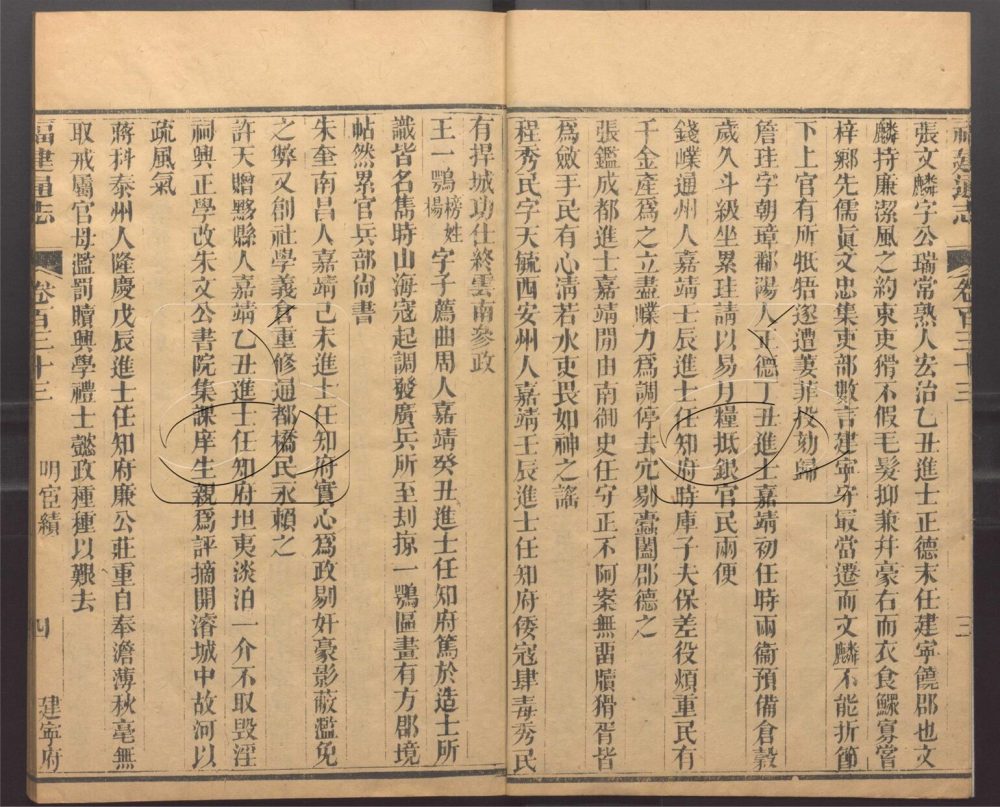 福建通志 卷百三十三 三
張文麟字公瑞常熟人宏治乙丑進士正德末任建寧饒郡也文
麟持廉潔風之約束吏猾不假毛髮抑兼并豪右而衣食鰥寡嘗
梓鄉先儒眞文忠集吏部數言建寧守最當遷而文麟不能折節
下上官有所牴牾遂遭萋菲投劾歸
詹珪字朝璋鄱陽人正德丁丑進士嘉靖初任時兩衞預備倉穀
歲久斗級坐累珪請以易月糧抵銀官民兩便
錢嶫通州人嘉靖壬辰進士任知府時庫子夫保差役煩重民有
千金產爲之立盡嶫力爲調停去宂剔蠹闔郡德之
張鑑成都進士嘉靖閒由南御史任守正不阿案無畱牘猾胥皆
爲斂手民有心淸若水吏畏如神之謠
程秀民字天毓西安州人嘉靖壬辰進士任知府倭寇肆毒秀民
有捍城功仕終雲南參政
王一鶚榜姓楊字子薦曲周人嘉靖癸丑進士任知府篤於造士所
識皆名雋時山海寇起調發廣兵所至刦掠一鶚區畫有方郡境
帖然累官兵部尙書
朱奎南昌人嘉靖己未進士任知府實心爲政剔奸豪影蔽濫免
之弊又創社學義倉重修通都橋民永賴之
許天贈黟縣人嘉靖乙丑進士任知府坦夷淡泊一介不取毁淫
祠興正學改朱文公書院集課庠生親爲評摘開濬城中故河以
疏風氣
蔣科泰州人隆慶戊辰進士任知府廉公莊重自奉澹薄秋毫無
取戒屬官毋濫罰贖興學禮士懿政種種以艱去
福建通志 卷百三十三 明宦績 四 建寧府